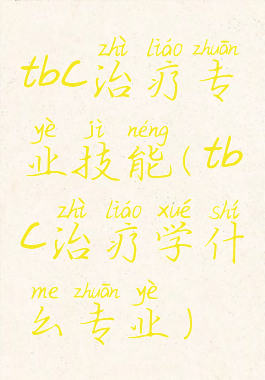 zhì liáo zhuān
tbc治疗专
yè jì néng
业技能(tb
zhì liáo xué shí
c治疗学什
me zhuān yè
么专业)